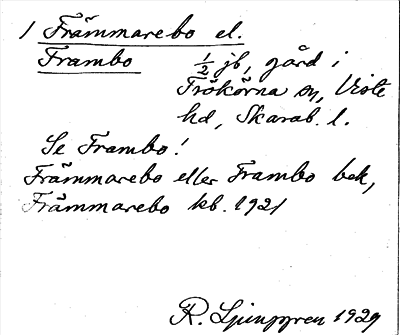 1 Främmarebo el.
Frambo ½ jb, gård i
Friökörna sn, Viste
hd, Skarab. l.
Se Frambo!
Främmarebo eller Frambo bek,
Främmarebo kb. 1921
R. Ljunggren 1929